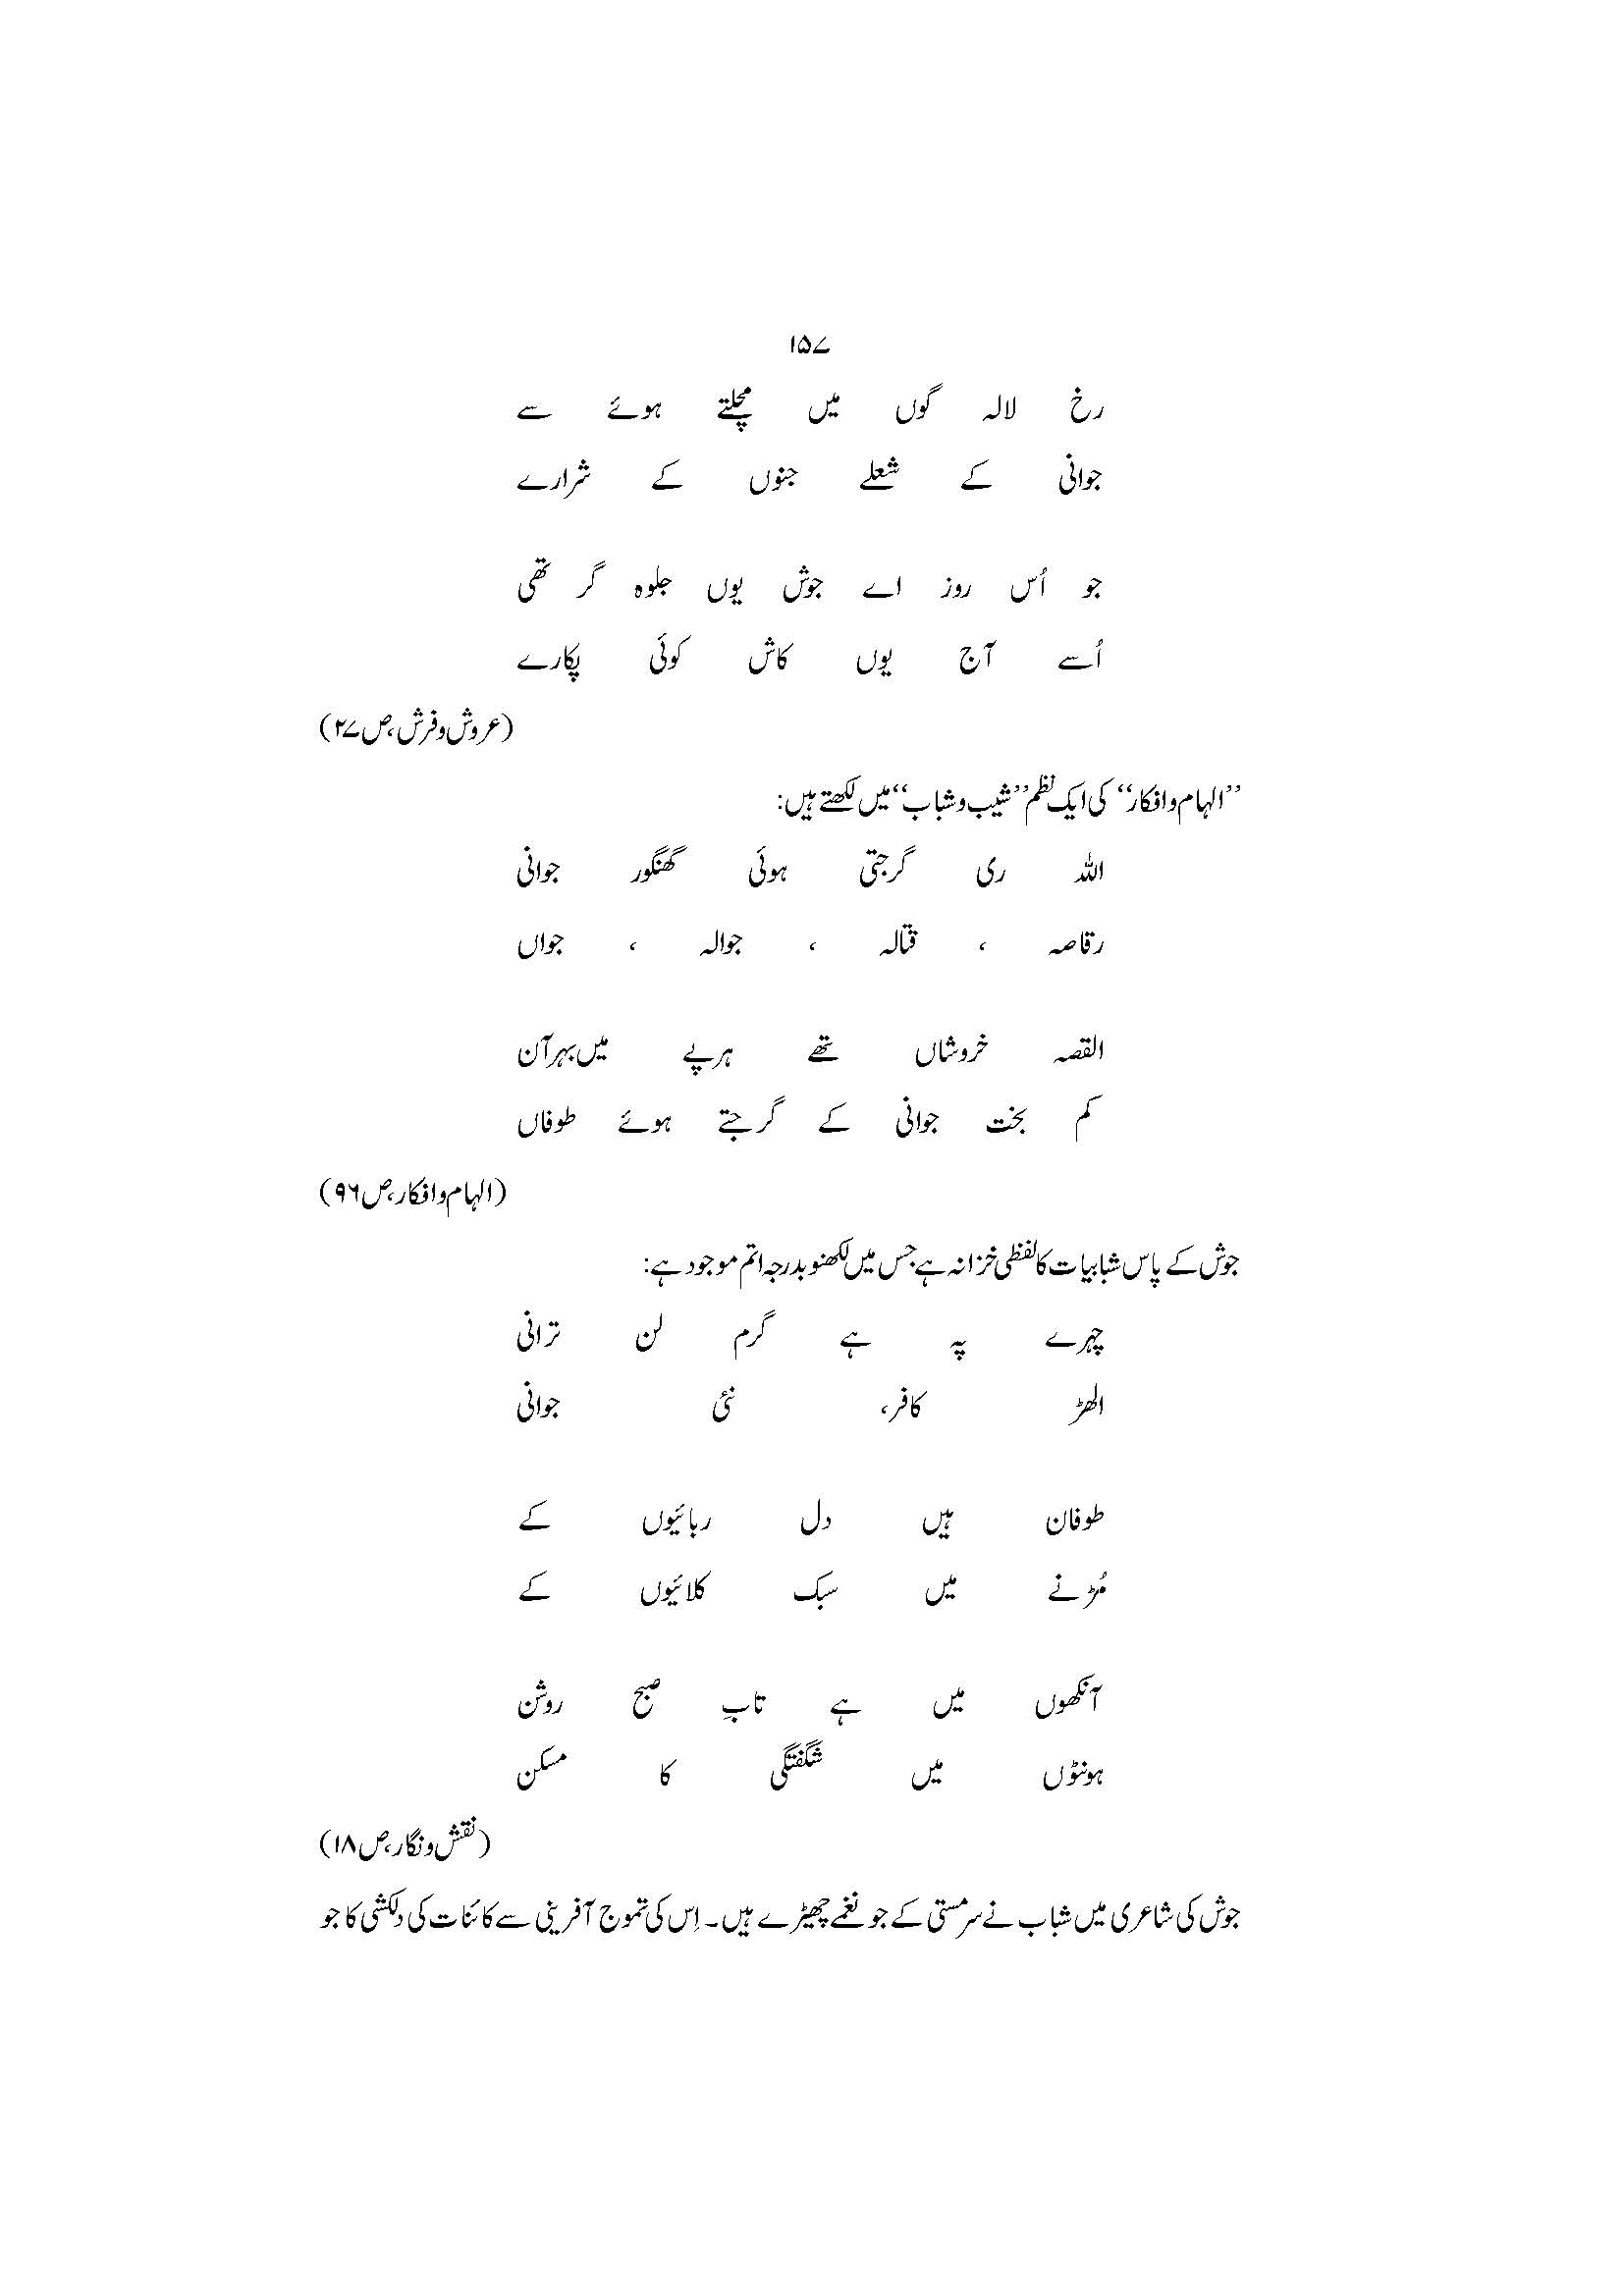 ۱۵۷
رخ لالہ گوں میں مچلتے ہوئے سے
جوانی کے شعلے جنوں کے شرارے
جو اُس روز اے جوش یوں جلوہ گر تھی
اُسے آج یوں کاش کوئی پکارے
(عروش و فرش،ص۲۷)
’’الہام و افکار‘‘ کی ایک نظم ’’شیب و شباب‘‘ میں لکھتے ہیں:
اللہ ری گرجتی ہوئی گھنگور جوانی
رقاصہ ، قتالہ ، جوالہ ، جواں
القصہ خروشاں تھے ہر پے میں بہر آن
کم بخت جوانی کے گرجتے ہوئے طوفاں
(الہام و افکار،ص۹۶)
جوش کے پاس شبابیات کا لفظی خزانہ ہے جس میں لکھنو بدرجہ اتم موجود ہے:
چہرے پہ ہے گرم لن ترانی
الھڑ کافر، نئی جوانی
طوفان ہیں دل ربائیوں کے
مُڑنے میں سبک کلائیوں کے
آنکھوں میں ہے تابِ صبح روشن
ہونٹوں میں شگفتگی کا مسکن
(نقش و نگار،ص۱۸)
جوش کی شاعری میں شباب نے سرمستی کے جو نغمے چھیڑے ہیں۔ اِس کی تموج آفرینی سے کائنات کی دلکشی کا جو